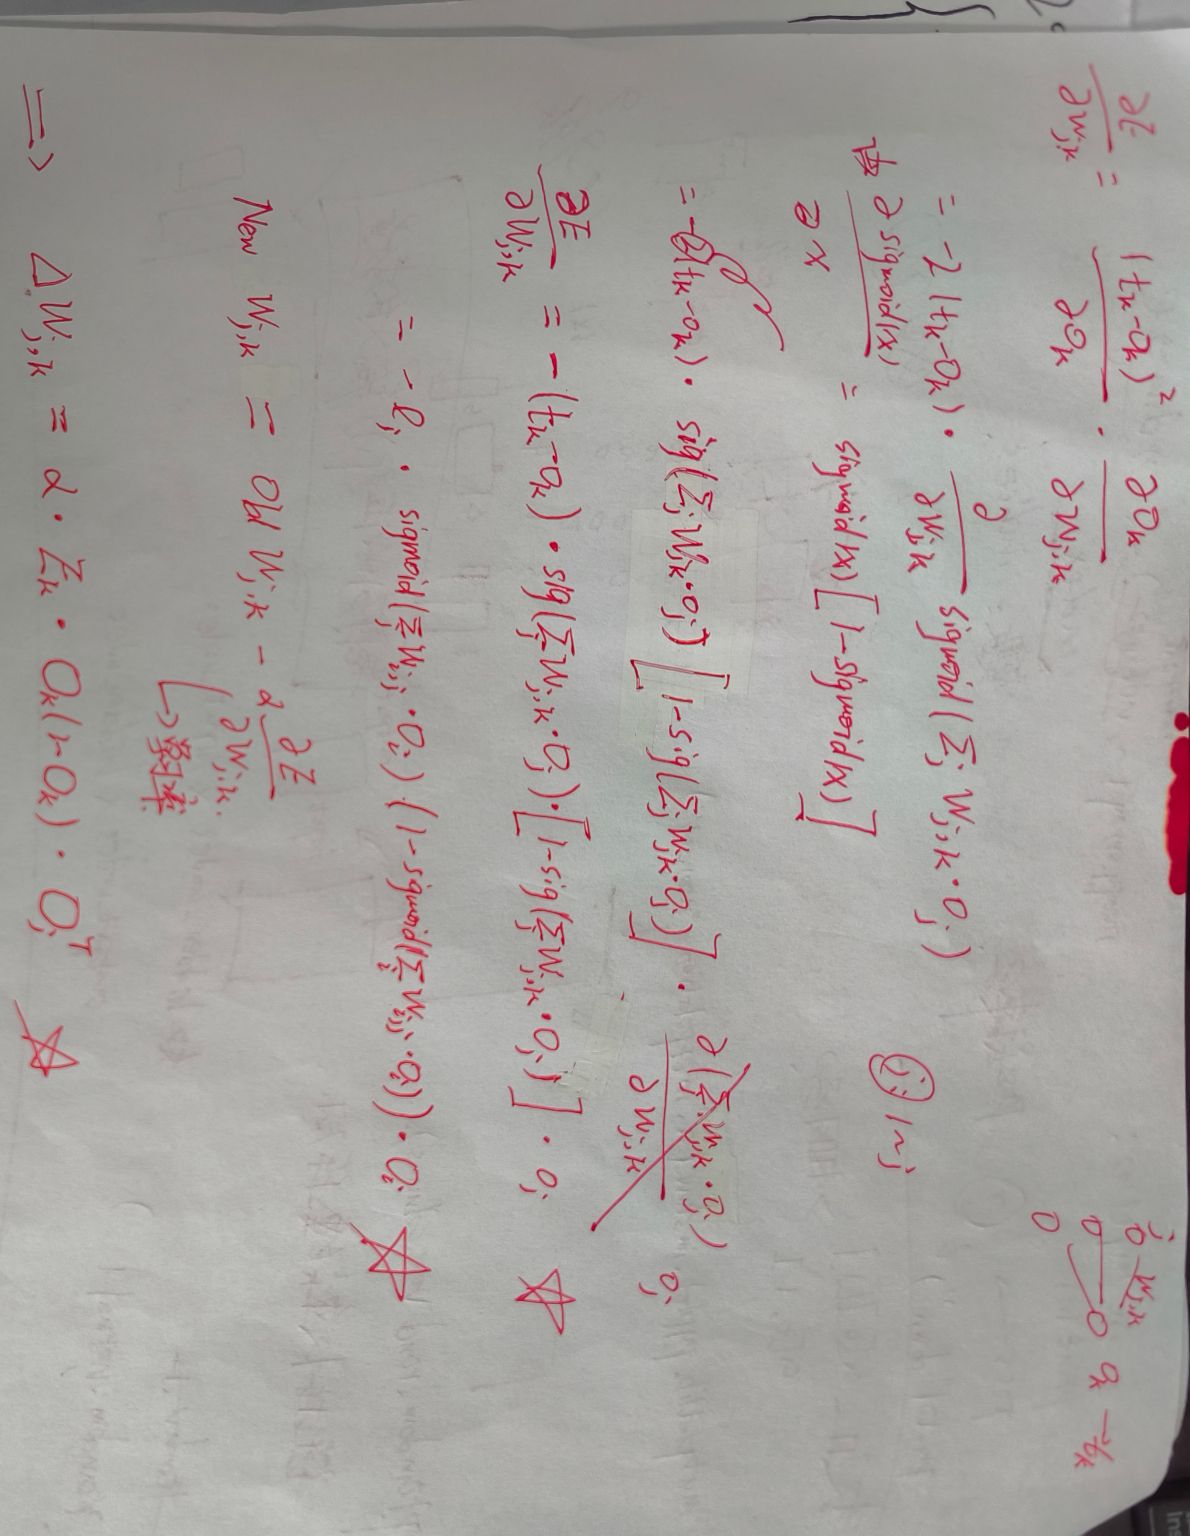 ∂E/∂w_{j,k} = (t_k-O_k)^2/∂O_k · ∂O_k/∂w_{j,k}
j
w_{j,k}
O_k → t_k
= -2(t_k-O_k) · ∂/∂w_{j,k} sigmoid(Σ_j w_{j,k}·O_j)
j: 1~j
∂ sigmoid(x)/∂x = sigmoid(x)[1-sigmoid(x)]
= -2(t_k-O_k) · sig(Σ_j w_{jk}·O_j)[1-sig(Σ_j w_{jk}·O_j)] · ∂(Σ_j w_{j,k}·O_j)/∂w_{j,k} O_j
∂E/∂w_{j,k} = -(t_k-O_k)·sig(Σ_j w_{j,k}·O_j)·[1-sig(Σ_j w_{j,k}·O_j)]·O_j ☆
= -e_j · sigmoid(Σ_j w_{i,j}·O_i)(1-sigmoid(Σ_i w_{i,j}·O_i))·O_i ☆
New w_{j,k} = Old w_{j,k} - α ∂E/∂w_{j,k}.
↳ 学习率
⇒ Δw_{j,k} = α · E_k · O_k(1-O_k) · O_j^T ☆